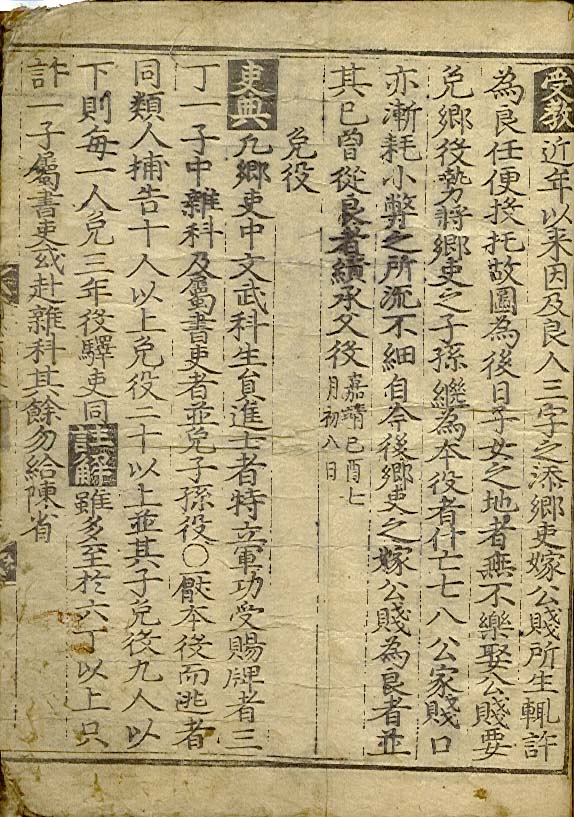 受教近年以来因及良人三字之添鄕吏嫁公賤所生輒許
為良任便投托故圖為後日子女之地者無不樂娶公賤要
免鄕役勢將鄕吏之子孫繼為本役者什亡七八公家賤口
亦漸耗小弊之所流不細自今後鄕吏之嫁公賤為良者並
其已曾從良者續承父役嘉靖己酉七
月初八日
免役
吏典凡鄕吏中文武科生員進士者特立軍功受賜牌者三
丁一子中雜科及屬書吏者並免子孫役○厭本役而逃者
同類人捕告十人以上免役二十以上並其子免役九人以
下則每一人免三年役驛吏同註解雖多至於六丁以上只
許一子屬書吏或赴雜科其餘勿給陳省